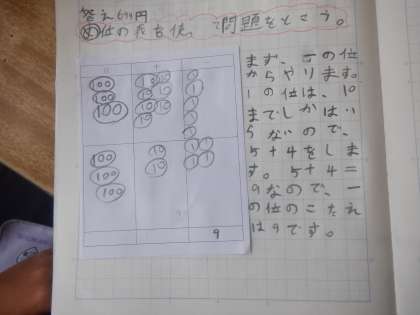 答え 679円
位の表を使って問題をとこう。
百 十 一
100 10 10 1
100 10 10 1
100 10 10 1
10 1
1
100 10 1 1
100 10 1 1
100
9
まず、一の位
からやります。
1の位は、10
までしかはい
らないので、
5+4をしま
す。5+4=
9なので、一
の位のこたえ
は9です。